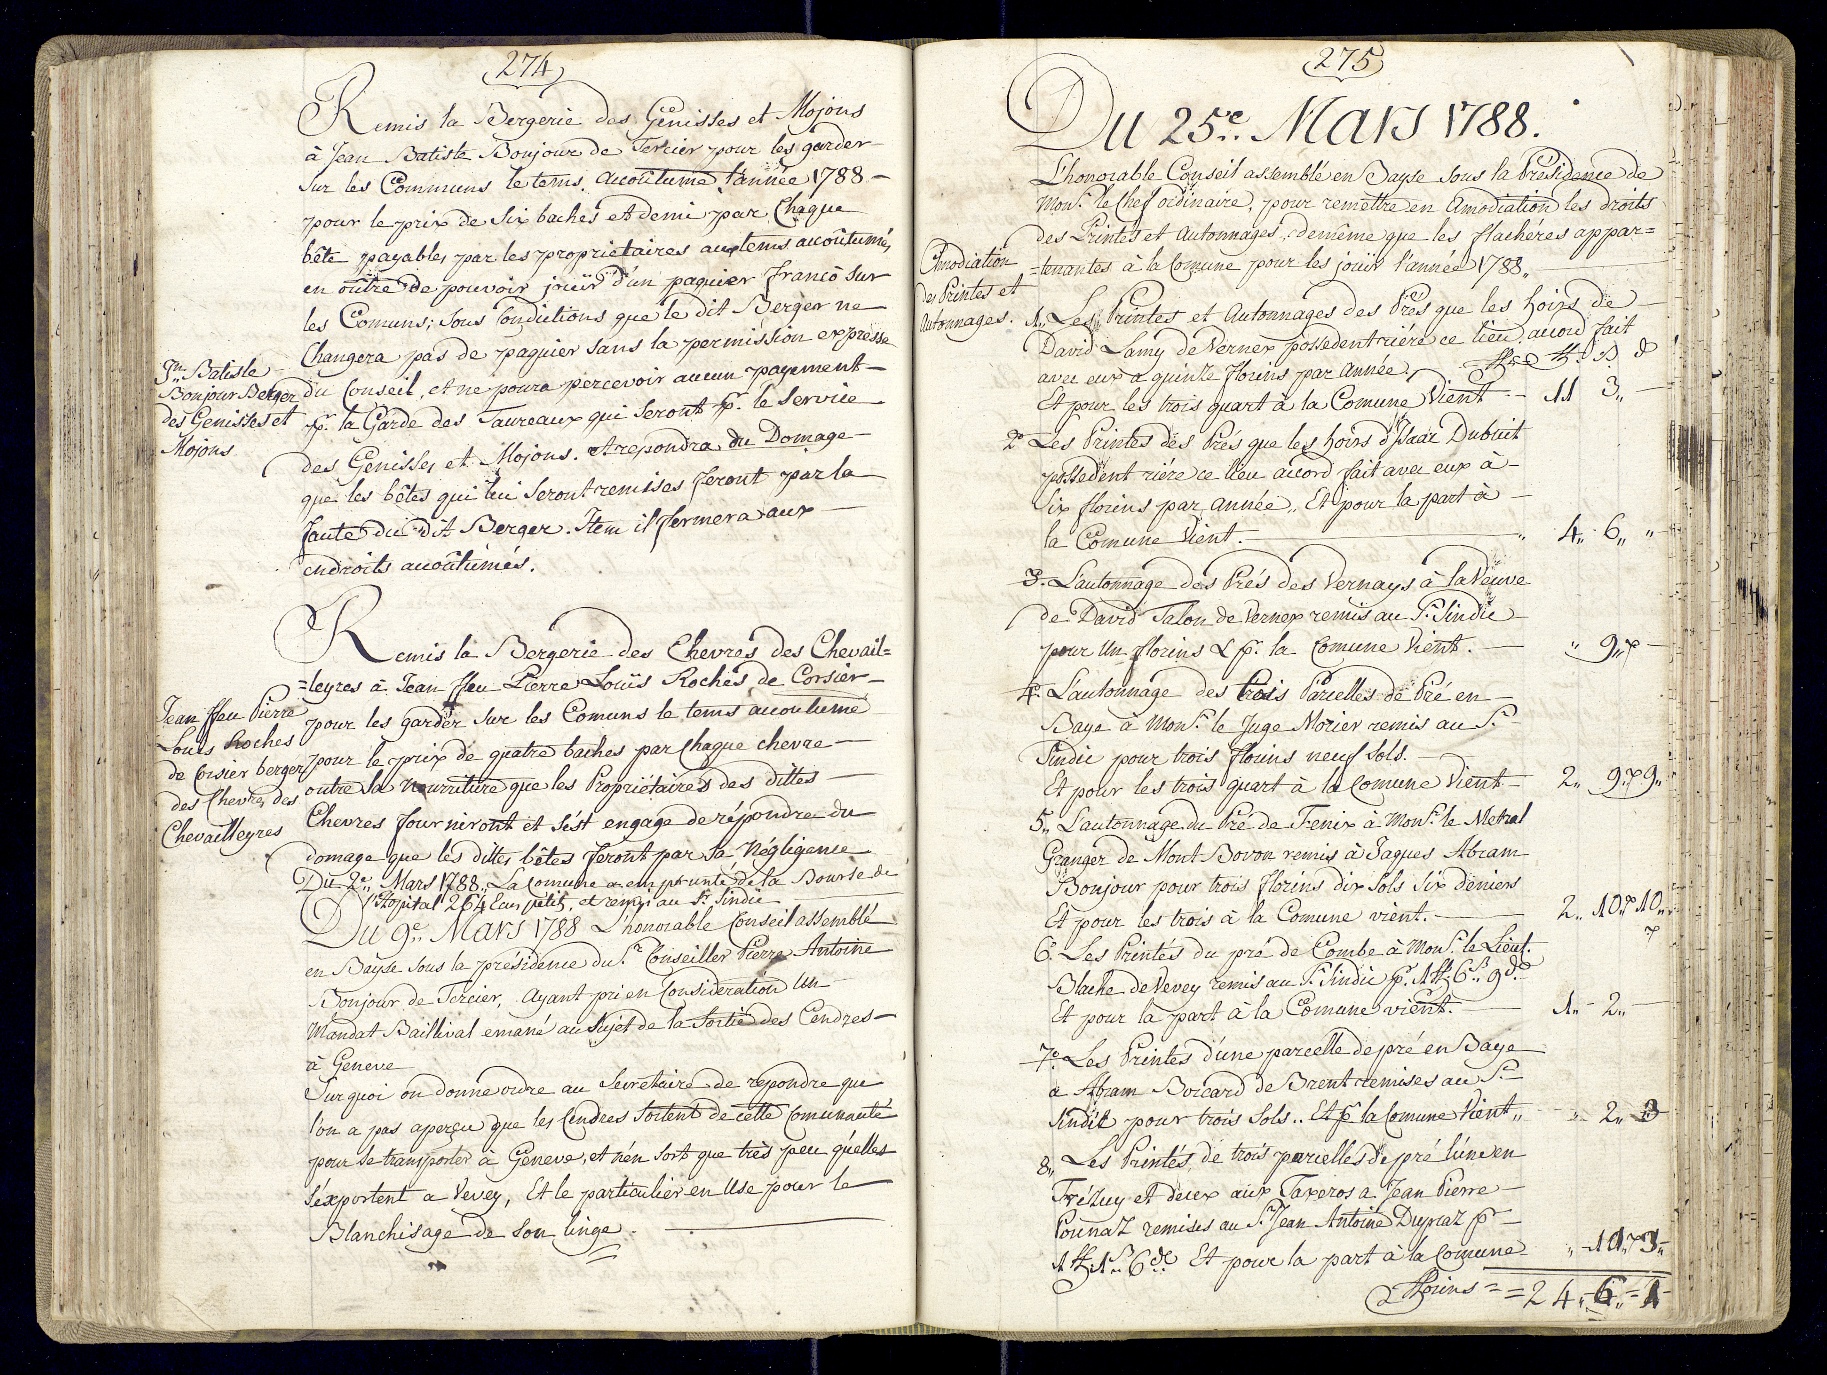 274
Remis la Bergerie des Génisses et Mojons
à Jean Batiste Bonjour de Tercier pour les garder
sur les Communs le tems accoûtumé l'année 1788 —
pour le prix de Six baches et demi par Chaque
bête payables par les propriétaires aux tems accoûtumés,
en oûtre de pouvoir joüir d'un paquier franco sur
les Comuns; Sous Condictions que le dit Berger ne
Changera pas de paquier sans la permission expresse
Jn. Batiste
Bonjour Berger
des Genisses et
Mojons
du Conseil, et ne poura percevoir aucun payement
pr. la Garde des Taureaux qui Seront pr. le Service
des Genisses et Mojons. Arepondra du Domage
que les bêtes qui lui Seront remises feront par la
faute du dit Berger. Item il fermera aux
endroits accoûtumés.
Remis la Bergerie des Chevres des Chevail=
=leyres à Jean ffeu Pierre Louïs Rochés de Corsier
Jean ffeu Pierre
Louis Roches
de Corsier berger
des Chevres des
Chevailleyres
pour les garder sur les Comuns le tems accoutumé
pour le prix de quatre baches par Chaque chevre
outre la nourriture que les Propriétaires des dittes
Chevres fourniront et s'ést engagé de répondre du
domage que les dittes bêtes feront par sa Négligence
Du 2e. Mars 1788,, La Comune a emprunté de la Bourse de
l'Hopital 264 Ecus petits, et remis au Sr. Sindic
Du 9e. Mars 1788 L'honorable Conseil assemblé
en Bayse sous la présidence du Sr. Conseiller Pierre Antoine
Bonjour de Tercier, Ayant pri en Considération Un
Mandat Baillival emané au Sujet de la Sortie des Cendres
à Geneve
Surquoi on donne ordre au Secretaire de répondre que
l'on a pas aperçu que les Cendres Sortent de cette Comunauté
pour se transporter à Geneve, et n'en Sort que très peu qu'elles
s'éxportent a Vevey, Et le particulier en Use pour le
Blanchisage de Son linge.
275
Du 25e. Mars 1788.
L'honorable Conseil assemblé en Bayse sous la Présidence de
Monsr. le Chef ordinaire, pour remettre en Amodiation les droits
des Printes et Autonnages, demême que les flachères appar=
=tenantes à la Comune pour les joüir l'année 1788,,
Amodiation
des Printes et
Autonnages.
1,, Les Printes et Autonnages des Prés que les hoirs de
David Lamy de Vernex possedent riére ce lieu, accord fait
avec eux a quinze florins par Année,
Et pour les trois quart à la Comune Vient — 11 3,, —
2e Les Printes des Prés que les hoirs d'Isaac Dubuit
possedent riére ce lieu accord fait avec eux à
Six florins par Année,, Et pour la part à
la Comune Vient. — 4,, 6,, ,,
3e. L'autonnage des Prés des Vernays à la Veuve
de David Talon de Vernex remis au Sr. Sindic
pour Un florins & pr. la Comune Vient. — ,, 9,, —
4e. L'autonnage des trois Parcelles de Pré en
Baye à Monsr. le Juge Morier remis au Sr.
Sindic pour trois florins neuf Sols.
Et pour les trois quart à la Comune Vient — 2,, 9,, 9,,
5,, L'autonnage du Pré de Fenix à Monsr. le Metral
Granger de Mont Bovon remis à Jaques Abram
Bonjour pour trois florins dix Sols Six deniers
Et pour les trois à la Comune vient. — 2,, 10,, 10,,
6e. Les Printés du pré de Combe à Monsr. le Lieut.
Blache de Vevey remis au Sr. Sindic pr. 1 ff. 6 s. 9 d.
Et pour la part à la Comune vient. — 1,, - 2,, —
7e. Les Printes d'une parcelle de pré en Baye
a Abram Borcard de Brent remises au Sr.
Sindic pour trois Sols.. Et pr la Comune Vient,, — ,, 2,, 3
8,, Les Printés de trois parcelles de pré l'une en
et deux aux Taxeros a Jean Pierre
Counaz remises au Sr. Jean Antoine Dupraz pr
1 ff. 1 s. 6 d. Et pour la part à la Comune — ,, - 10,, 3,,
Florins = = 24,, 6,, = 1